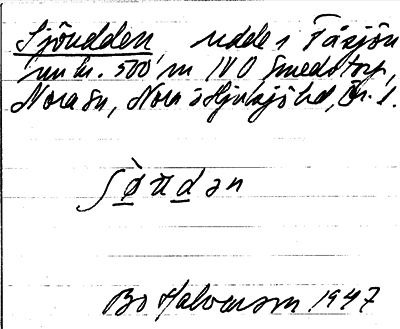 Sjöudden, udde i Fåsjön
um kr. 500 m NO Smedstorp,
Nora sn, Nora o Hjulsjö hd, Ör. l.
ʃø̀ʉdən
Bo Halvarson 1947